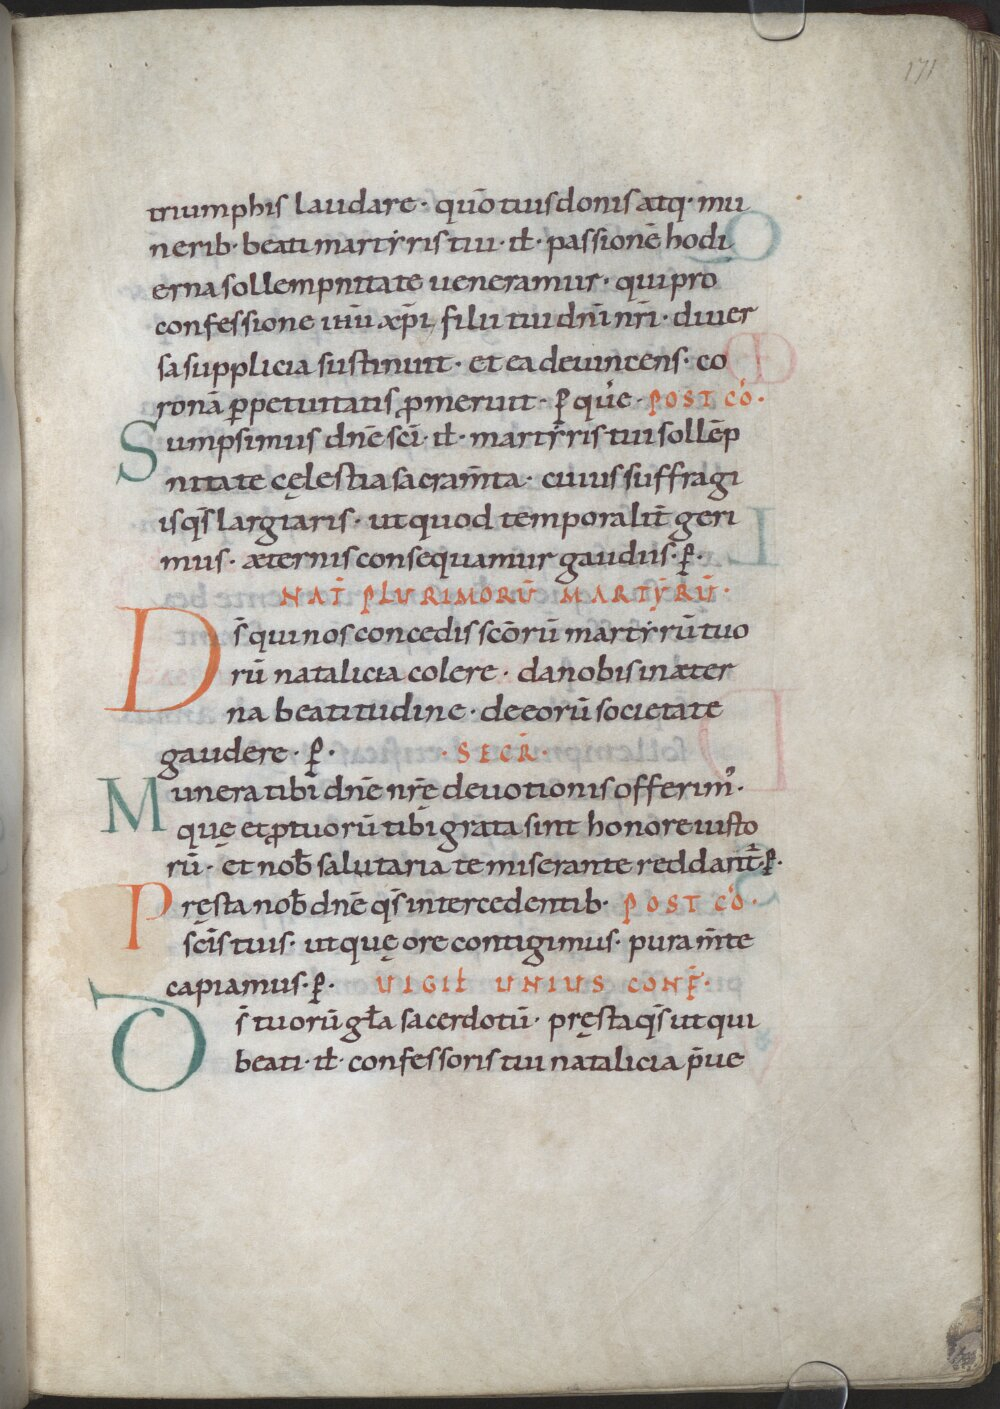 171
triumphis laudare· quō tuis donis atq· mu
nerib· beati martẏris tui· ił· passionē hodi
erna sollempnitate ueneramur· qui pro
confessione ihū xp̄i filii tui dn̄i nr̄i· diuer
sa supplicia sustinuit· et ea deuincens· co
ronā ꝑpetuitatis ꝓmeruit· ꝑ quē· POST CŌ·
Sumpsimus dn̄e sc̄i· ił· martẏris tui sollēp
nitate cęlestia sacram̄ta· cuius suffragi
is qs̄ largiaris· ut quod temporalit̄ geri
mus· æternis consequamur gaudiis· ꝑ·
NAT̄ PLURIMORŪ MARTẎRŪ·
Ds̄ qui nos concedis sc̄orū martẏrū tuo
rū natalicia colere· da nobis in æter
na beatitudine· de eorū societate
gaudere· ꝑ· ·SECR̄·
Munera tibi dn̄e nr̄ę deuotionis offerim᾽·
quę et ꝓ tuorū tibi grata sint honore iusto
rū· et nob̄ salutaria te miserante reddant̄· ꝑ·
Pręsta nob̄ dn̄e qs̄ intercedentib· POST CŌ·
sc̄is tuis· ut quę ore contigimus· pura m̄te
capiamus· ꝑ· UIGIŁ UNIUS CONF̄·
Ds̄ tuorū gła sacerdotū· pręsta qs̄ ut qui
beati· ił· confessoris tui natalicia p̄ue